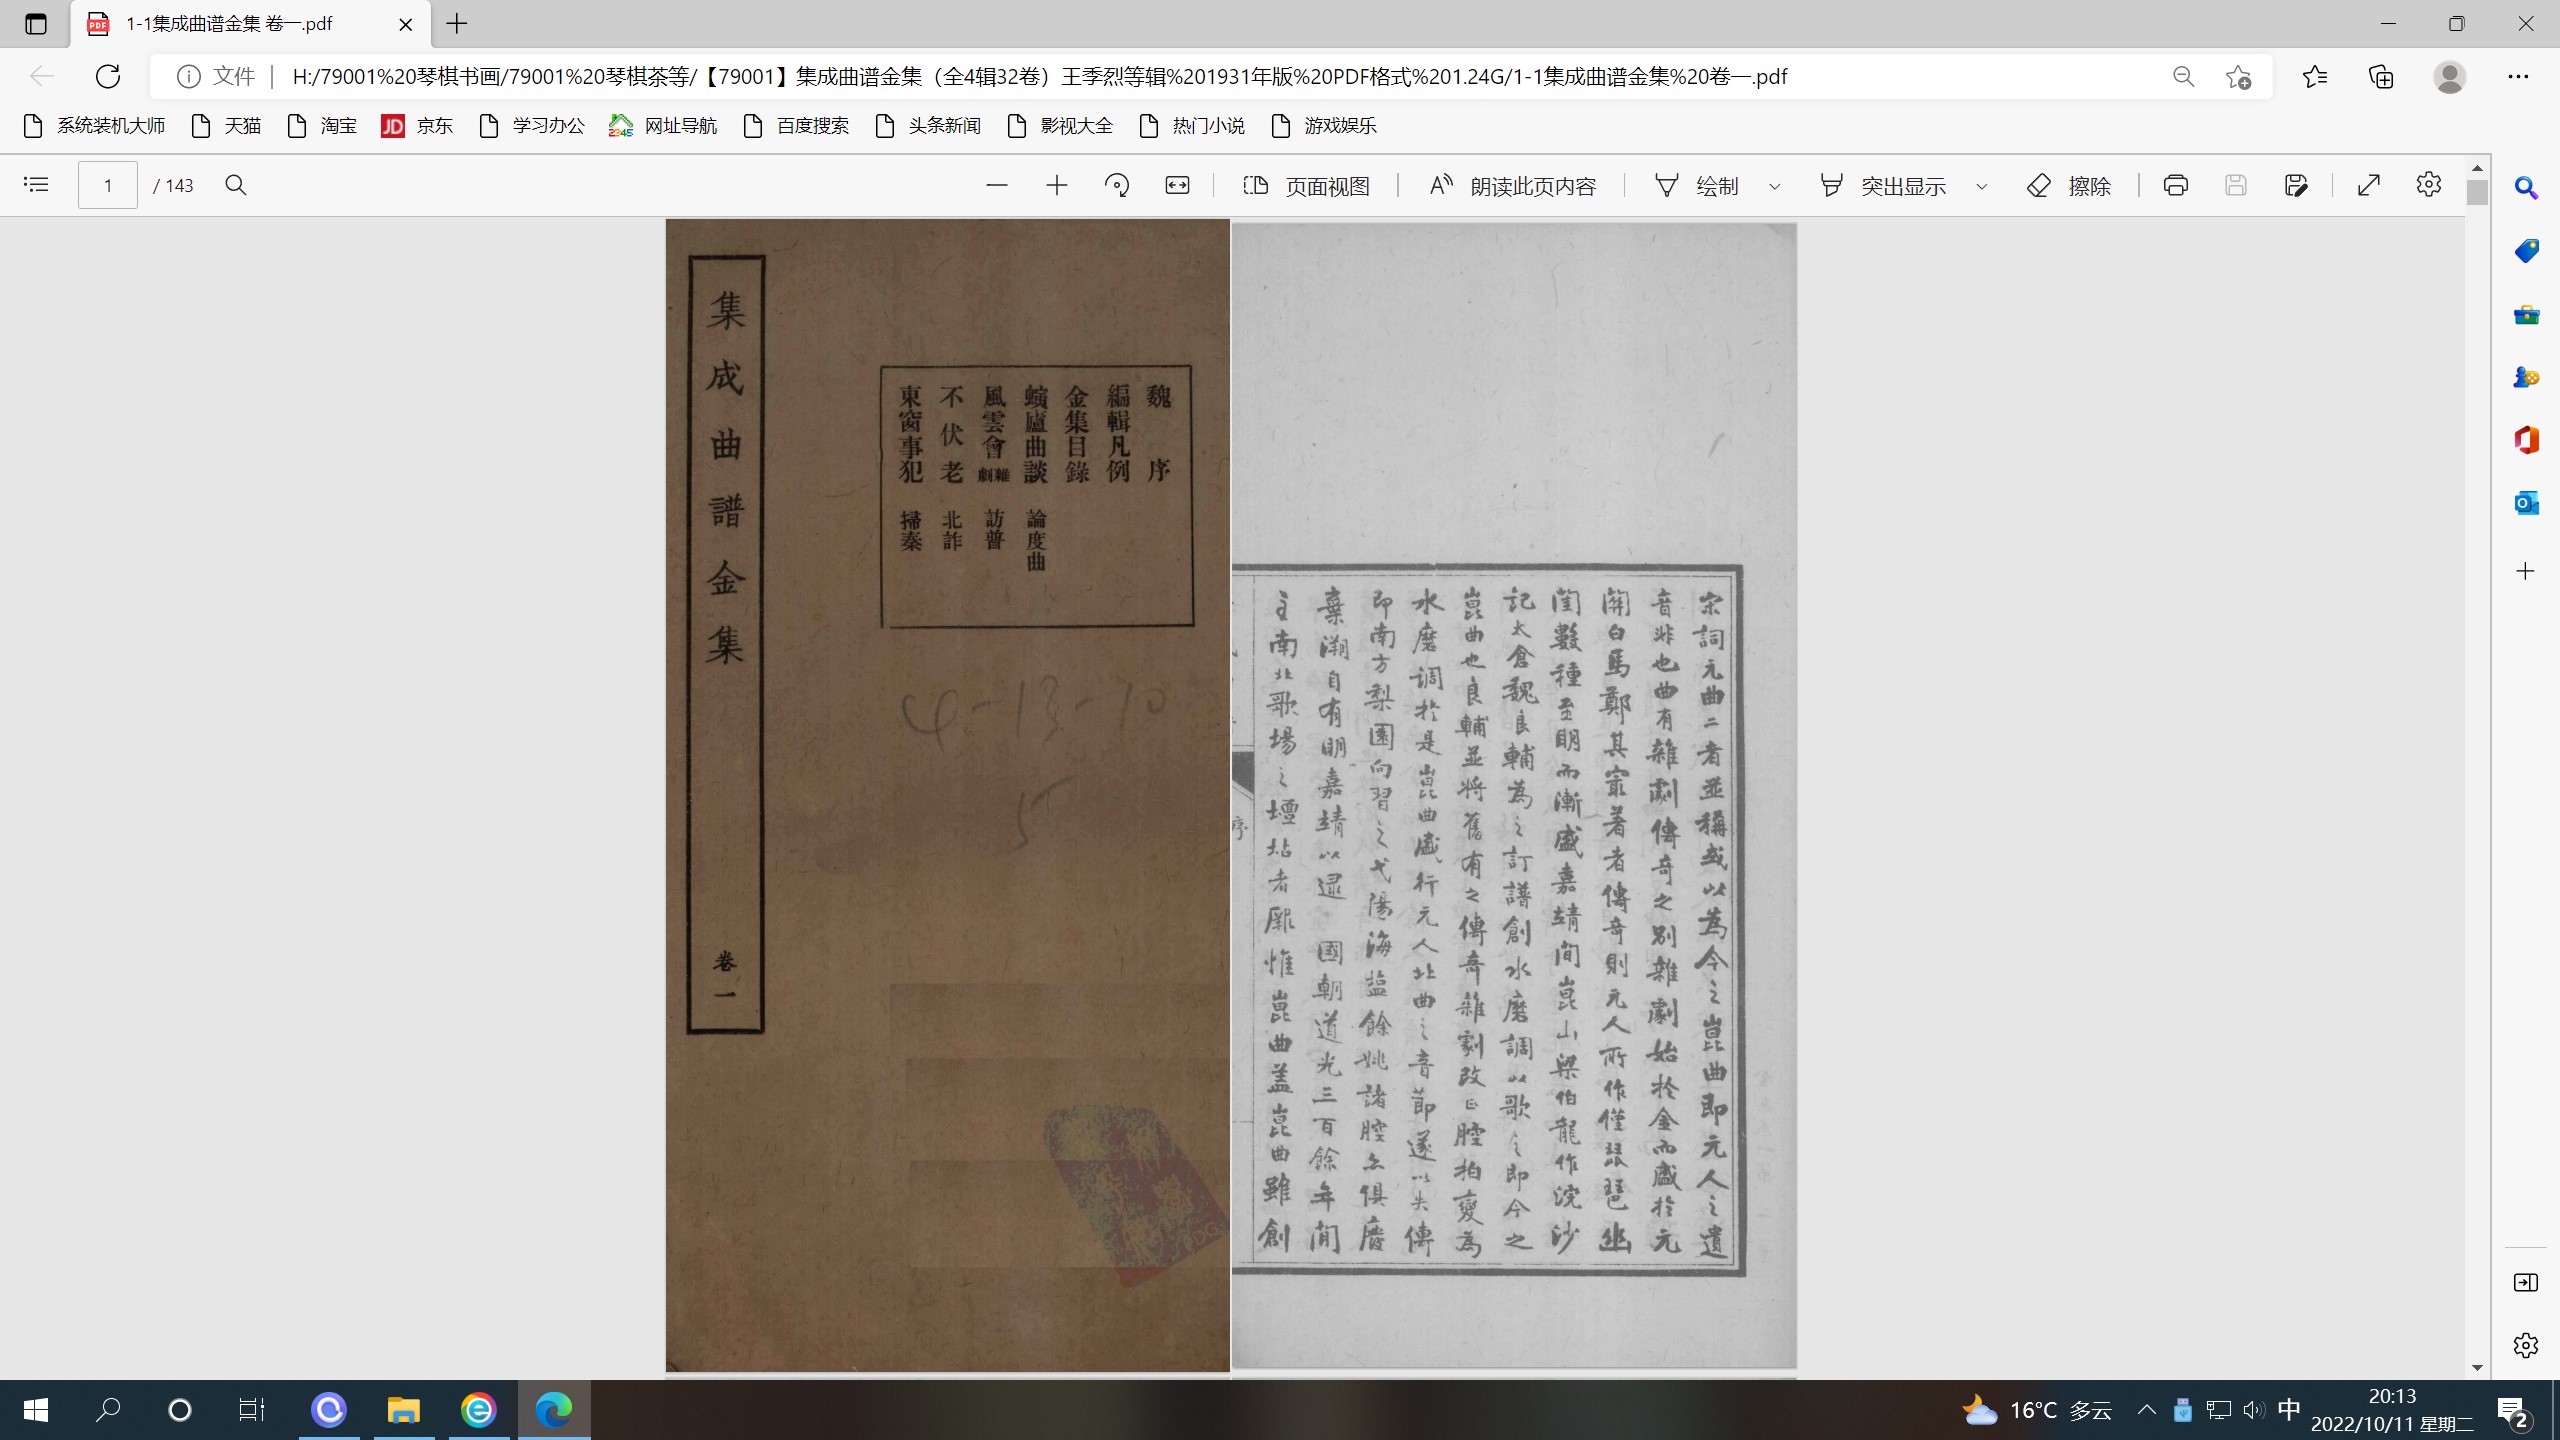 1-1集成曲谱金集 卷一.pdf
文件
H:/79001%20琴棋书画/79001%20琴棋茶等/【79001】集成曲谱金集（全4辑32卷）王季烈等辑%201931年版%20PDF格式%201.24G/1-1集成曲谱金集%20卷一.pdf
系统装机大师 天猫 淘宝 JD 京东 学习办公 2345 网址导航 百度搜索 头条新闻 影视大全 热门小说 游戏娱乐
1 / 143 页面视图 朗读此页内容 绘制 突出显示 擦除
魏序
編輯凡例
金集目錄
螾廬曲談 論度曲
風雲會雜劇 訪普
不伏老 北詐
東窗事犯 掃秦
集成曲譜金集 卷一
4-13-10
宋詞元曲二者並稱或以為今之崑曲即元人之遺
音非也曲有雜劇傳奇之別雜劇始於金而盛於元
關白馬鄭其最著者傳奇則元人所作僅琵琶幽
閨數種至明而漸盛嘉靖間崑山梁伯龍作浣沙
記太倉魏良輔為之訂譜創水磨調以歌之即今之
崑曲也良輔並將舊有之傳奇雜劇改正腔拍變為
水磨調於是崑曲盛行元人北曲之音節遂以失傳
即南方梨園向習之弋陽海盐餘姚諸腔亦俱廢
棄溯自有明嘉靖以還 國朝道光三百餘年間
主南北歌場之壇坫者厥惟崑曲盖崑曲雖創
序
16°C 多云
中
20:13
2022/10/11 星期二
2